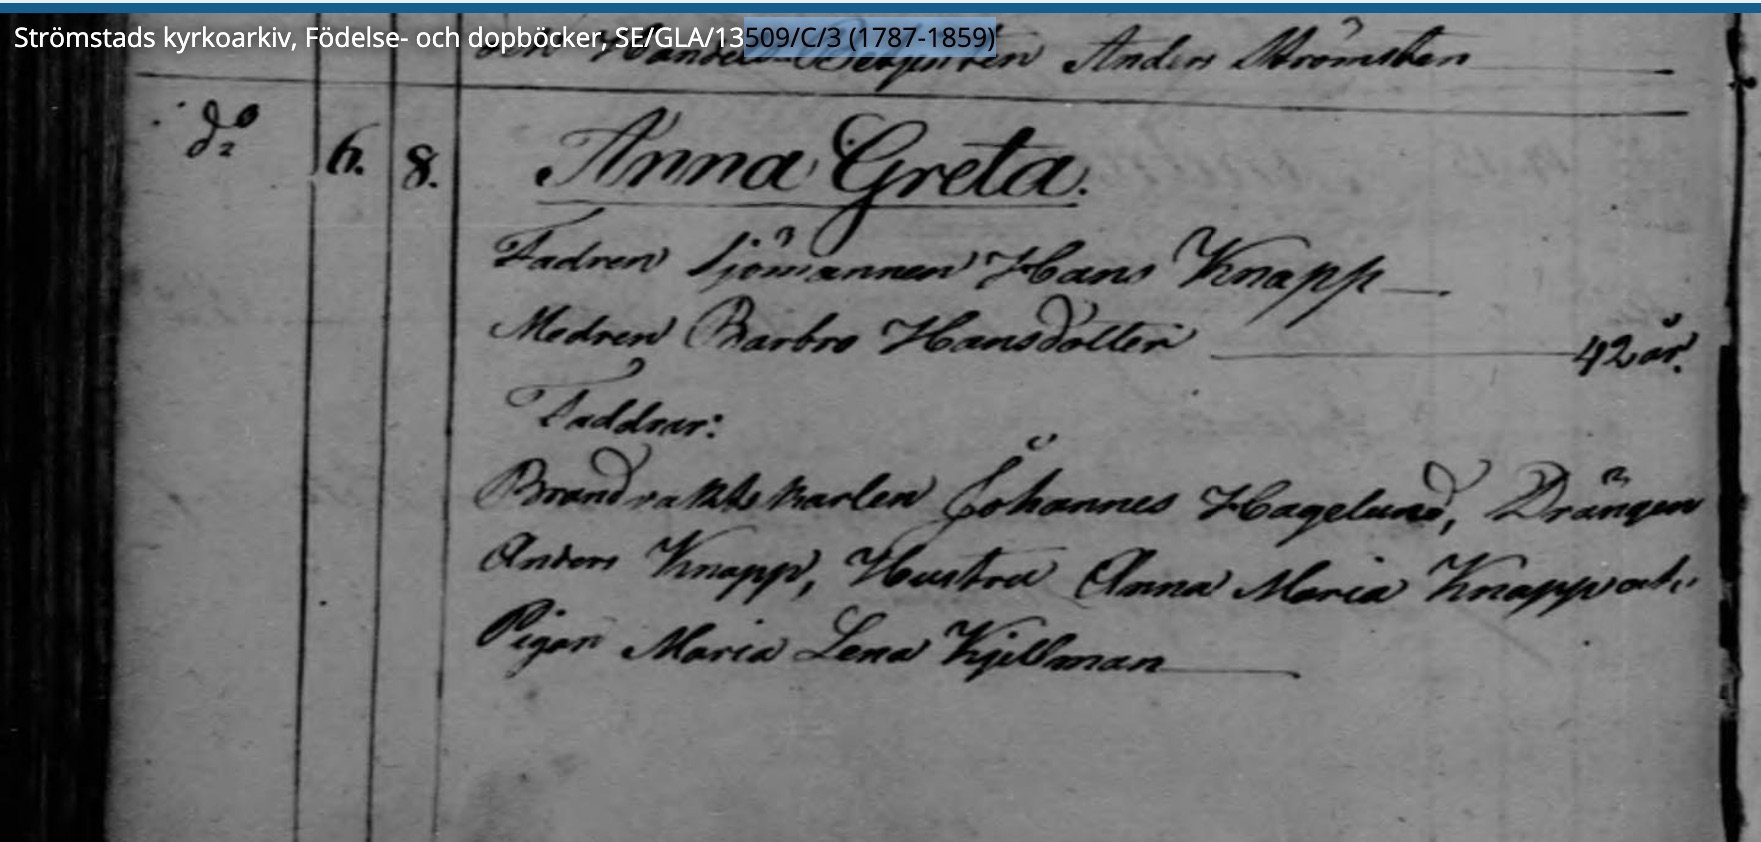 Strömstads kyrkoarkiv, Födelse- och dopböcker, SE/GLA/13509/C/3 (1787-1859)
Anders Strömsten
do 6. 8. Anna Greta.
Fadren Sjömannen Hans Knapp
Modren Barbro Hansdotter 42 år.
Faddrar:
Brandvaktskarlen Johannes Hagelund, Drängen
Anders Knapp, Hustru Anna Maria Knapp och
Pigan Maria Lena Kjellman